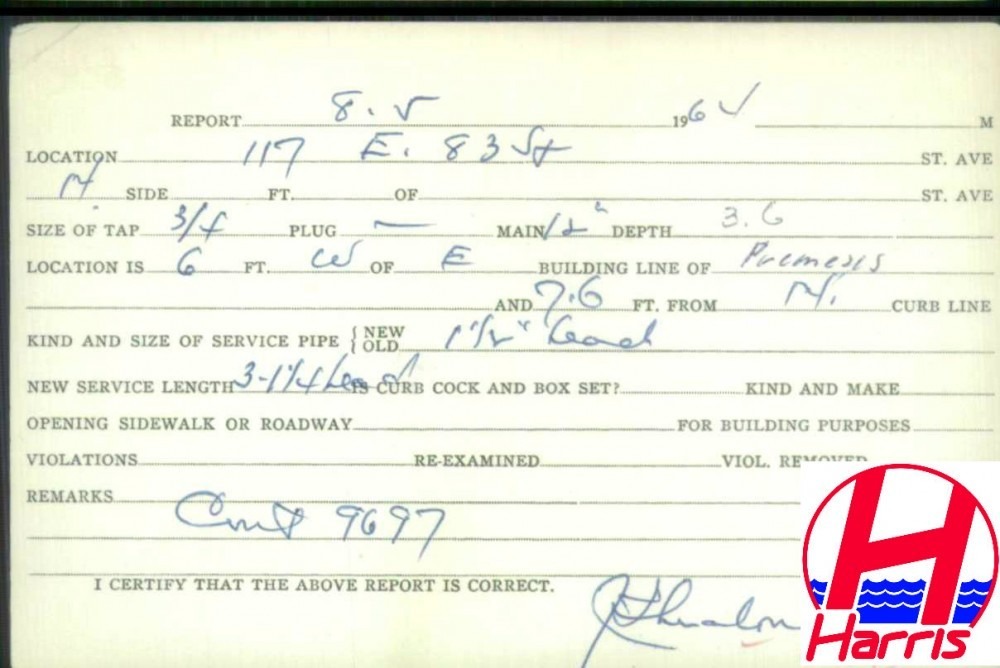 REPORT 8. 5 196 M
LOCATION 117 E. 83 St ST. AVE
N SIDE FT. OF ST. AVE
SIZE OF TAP 3/4 PLUG — MAIN 12" DEPTH 3.6
LOCATION IS 6 FT. W OF E BUILDING LINE OF Premesis
AND 7.6 FT. FROM N. CURB LINE
KIND AND SIZE OF SERVICE PIPE { NEW OLD 1 1/2" Lead
NEW SERVICE LENGTH 3-1 1/4 Lead IS CURB COCK AND BOX SET? KIND AND MAKE
OPENING SIDEWALK OR ROADWAY FOR BUILDING PURPOSES
VIOLATIONS RE-EXAMINED VIOL. REMOVED
REMARKS
9697
I CERTIFY THAT THE ABOVE REPORT IS CORRECT.
H
Harris